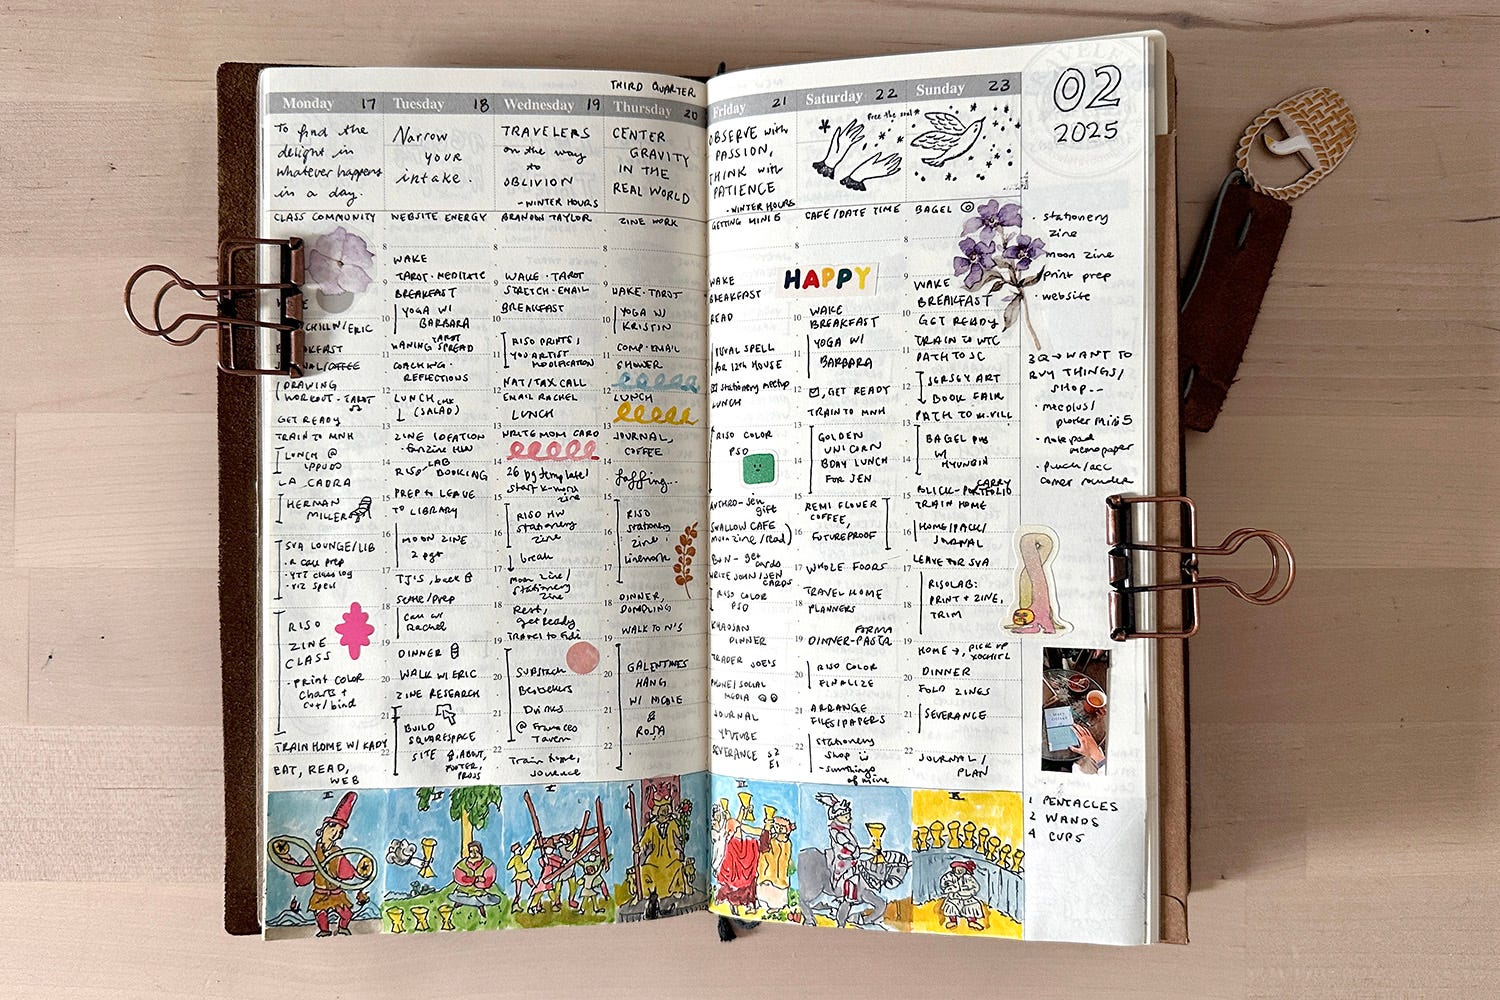 THIRD QUARTER
Monday 17
To find the
delight in
whatever happens
in a day.
CLASS COMMUNITY
CHILL W/ ERIC
BREAKFAST
JOURNAL/COFFEE
DRAWING
WORKOUT · TAROT
GET READY
TRAIN TO MNH
LUNCH @
IPPUDO
LA CABRA
HERMAN
MILLER
SVA LOUNGE/LIB
· R CALL PREP
· YTT class log
· viz spell
RISO
ZINE
CLASS
· PRINT COLOR
CHARTS +
cut/bind
TRAIN HOME W/ KADY
EAT, READ,
WEB
Tuesday 18
Narrow
YOUR
intake.
WEBSITE ENERGY
8
WAKE
TAROT · MEDITATE
9
BREAKFAST
10
YOGA W/
BARBARA
WANING TAROT SPREAD
11
COACHING ·
REFLECTIONS
12
LUNCH
(SALAD)
13
ZINE IDEATION
· fanzine HW
14
RISO LAB
BOOKING
15
PREP to LEAVE
TO LIBRARY
16
MOON ZINE
2 pgs
17
TJ'S, back
18
Settle/prep
Call w/
Rachel
19
DINNER
20
WALK W/ ERIC
ZINE RESEARCH
21
BUILD
SQUARESPACE
22
SITE ABOUT,
FOOTER,
PROJS
Wednesday 19
TRAVELERS
on the way
to
OBLIVION
- WINTER HOURS
BRANDN TAYLOR
8
WAKE · TAROT
9
STRETCH · EMAIL
BREAKFAST
10
RISO PRINTS /
11
YOU ARTIST
MODIFICATION
NAT/TAX CALL
12
EMAIL RACHEL
LUNCH
13
WRITE MOM CARD
14
26 pg template/
start k-mons
zine
15
RISO HW
stationery
zine
16
break
17
Moon zine/
stationery
zine
18
Rest,
get ready
Travel to Fidi
19
SUBSTACK
20
Bestsellers
Drinks
21
@ Fraunces
Tavern
22
Train home,
journal
Thursday 20
CENTER
GRAVITY
IN THE
REAL WORLD
ZINE WORK
8
WAKE · TAROT
9
YOGA W/
10
KRISTIN
COMP · EMAIL
11
SHOWER
12
LUNCH
13
JOURNAL,
COFFEE
14
faffing...
15
RISO
stationery
zine
16
linework
17
DINNER,
18
DUMPLING
WALK TO N'S
19
GALENTINES
20
HANG
W/ NICOLE
21
&
ROSA
22
Friday 21
OBSERVE with
PASSION,
THINK with
PATIENCE
- WINTER HOURS
GETTING MINI 5
8
WAKE
BREAKFAST
9
READ
10
RITUAL SPELL
for 12th HOUSE
11
stationery meetup
12
LUNCH
13
RISO COLOR
PSD
14
ANTHRO - Jen
gift
15
SWALLOW CAFE
moon zine/read
16
B&N - get
cards
17
WRITE JOHN/JEN
CARDS
RISO COLOR
18
PSD
KHAOSAN
19
DINNER
TRADER JOE'S
20
PHONE/SOCIAL
MEDIA
21
JOURNAL
YOUTUBE
22
SEVERANCE S2
E1
Saturday 22
Free the soul
CAFE/DATE TIME
8
HAPPY
9
WAKE
10
BREAKFAST
YOGA W/
11
BARBARA
GET READY
12
TRAIN TO MNH
13
GOLDEN
UNICORN
14
BDAY LUNCH
FOR JEN
15
REMI FLOWER
COFFEE,
16
FUTUREPROOF
WHOLE FOODS
17
TRAVEL HOME
18
PLANNERS
19
FORMA
DINNER - PASTA
20
RISO COLOR
FINALIZE
21
ARRANGE
FILES/PAPERS
22
stationery
shop
- sumthings
of mine
Sunday 23
BAGEL
8
WAKE
9
BREAKFAST
10
GET READY
TRAIN TO WTC
11
PATH TO JC
JERSEY ART
12
BOOK FAIR
PATH TO W.VILL
13
BAGEL PUB
W/
14
HYUNBIN
CARRY
BLICK - PORTFOLIO
15
TRAIN HOME
HOME/PACK/
16
JOURNAL
LEAVE for SVA
17
RISOLAB:
PRINT + ZINE,
18
TRIM
HOME →, PICK UP
19
XOCHITL
DINNER
20
FOLD ZINES
21
SEVERANCE
22
JOURNAL/
PLAN
02
2025
· stationery
zine
· moon zine
· print prep
· website
3Q → WANT TO
BUY THINGS/
SHOP...
· mec plus/
plotter mini 5
· notepad
memo paper
· punch/acc
corner rounder
1 PENTACLES
2 WANDS
4 CUPS